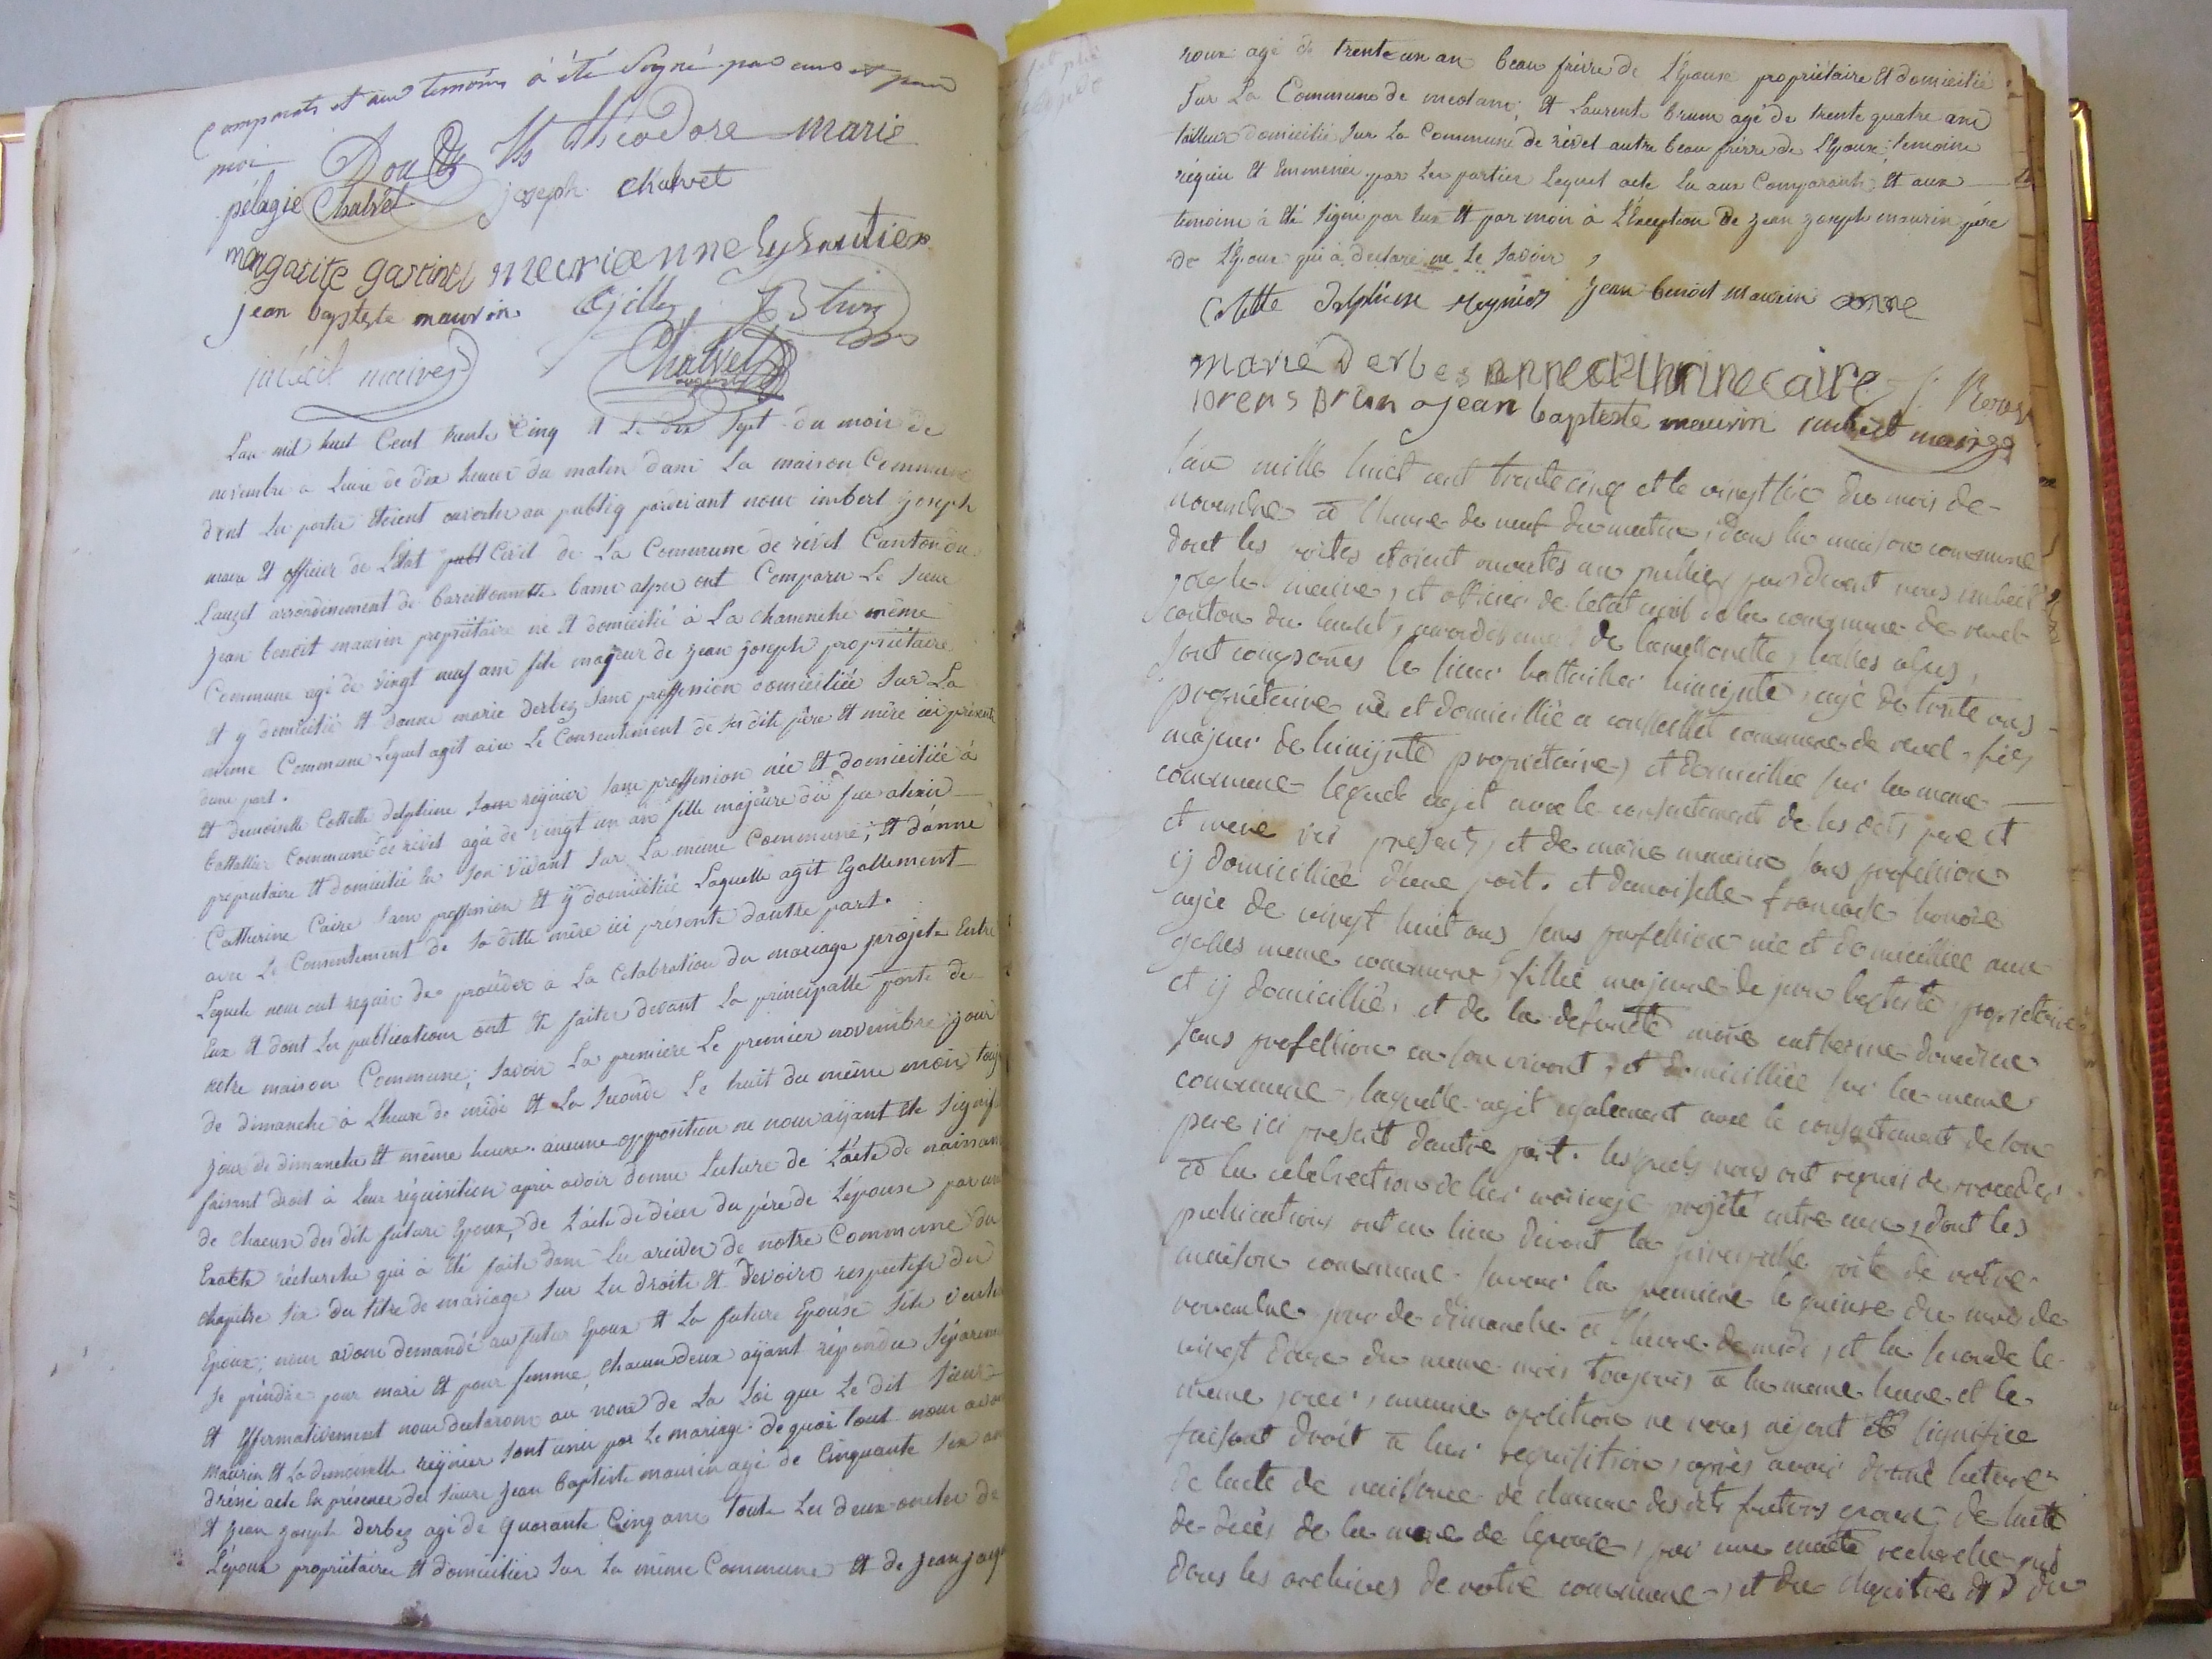 comparants et aux temoins à été Signé par eux et par
moi
Théodore marie
pélagie Chalvet joseph chalvet
margarite gastinel
jean baptiste maurin Gilly
imbert maire
Chalvet
Lan mil huit Cent trente Cinq et Le dix Sept du mois de
novembre a Lheure de dix heures du matin dans La maison Commune
dont Les portes étoient ouvertes au publiq pardevant nous imbert joseph
maire et officier de Létat publ Civil de La Commune de révél Canton du
Lauzet arrondissement de barcelonnette basses alpes ont Comparu Le Sieur
jean benoit maurin propriétaire né et domicilié à La chanenche même
Commune agé de vingt neuf ans fils majeur de jean joseph propriétaire
et y domicilié et danne marie derbez sans proffession domiciliée Sur La
même Commune Lequel agit avec Le Consentement de ses dits père et mère ici présents
dune part.
et demoiselle Collette delphine Sans reynier Sans proffession née et domiciliée à
Commune de révél agée de vingt un an fille majeure du feu
propriétaire et domicilié En Son vivant Sur La même Commune; et danne
Catherine Caire Sans proffession et y domiciliée Laquelle agit Egallement
avec Le Consentement de Sa ditte mère ici présente dautre part.
Lequels nous ont requis de procéder à La Célabration du mariage projeté Entre
Eux et dont Les publications ont été faites devant La principalle porte de
notre maison Commune; Savoir La première Le premier novembre jour
de dimanche à Lheure de midi et La Seconde Le huit du même mois
jour de dimanche et même heure. aucune opposition ne nous aÿant été
faisant droit à Leur réquisition après avoir donné Lecture de Lacte de
de chacun des dits futurs Epoux, de Lacte de décès du père de Lépouse par une
Exacte récherche qui à été faite dans Les archives de notre Commune du
chapitre Six du titre de mariage Sur Les droits et devoirs respectifs des
Epoux; nous avons demandé au futur Epoux et La future Epouse Sils
Se prendre pour mari et pour femme, chacun deux aÿant répondu
et affirmativement nous déclarons au nom de La Loi que Le dit Sieur
Maurin et La demoiselle reÿnier Sont unis par Le mariage. de quoi tout nous avons
dréssé acte En présence des Sieurs jean baptiste maurin agé de Cinquante Six ans
et jean joseph derbez agé de quarante Cinq ans touts Les deux oncles de
Lépoux propriétaires et domiciliés Sur La même Commune et de jean
roux agé de trente un an beau frère de Lépouse propriétaire et domicilié
Sur La Commune de meolans; et Laurents brun agé de trente quatre ans
tailleur domicilié Sur La Commune de révél autre beau frère de Lépoux; temoins
réquis et Emmenés par Les parties Lequel acte Lu aux Comparants et aux
temoins à été Signé par Eux et par moi à L'Exception de jean joseph maurin père
de Lépoux qui à déclaré ne Le Savoir,
Colette delphine reynier jean benoit maurin anne
marie derbes anne cathrine caire
lorens brun jean baptiste maurin imbert maire
lan mille huict cent trente cinq et le vingt six du mois de
novembre a lheure de neuf du matin, dans la maison commune
dont les portes etoient ouvertes au publicq pardevant nous imbert
joseph maire, et officier de letat civil de la commune de revel
canton du lauzet, arrondissement de barcellonette, basses alpes,
sont comparus le sieur hiacynte, agé de trente ans
propriétaire né et domicillié a commune de revel, fils
majeur de hiacynte propriétaire, et domicillié sur la meme
commune lequel agit avec le consentement de ses dits pere et
et mere ici presents, et de marie sans profession
y domicilliée d'une part. et demoiselle francoise honoré
agée de vingt huit ans sans profession née et domicilliée aux
meme commune, fillie majeure de jean baptiste, propriétaire
et y domicillié, et de la defuncte marie catherine
sans profession en son vivant, et domicilliée sur la meme
commune, laquelle agit egalement avec le consentement de son
pere ici présent dautre part. lesquels nous ont requis de proceder
a la celebration de leur mariage projeté entre eux, dont les
publications ont eu lieu devant la principalle porte de notre
maison commune. savoir la premiere le quinse du mois de
novembre jour de dimanche a lheure de midi, et la seconde le
vingt deux du meme mois toujours a la meme heure et le
meme jour, aucune oposition ne nous aijant été signifiée
faisant droit a leur requisition, après avoir donné lecture
de lacte de naissance de chacun des dits futurs epoux, de lacte
de décès de la mere de lepouse, par une exacte recherche
dans les archives de notre commune, et du chapitre du